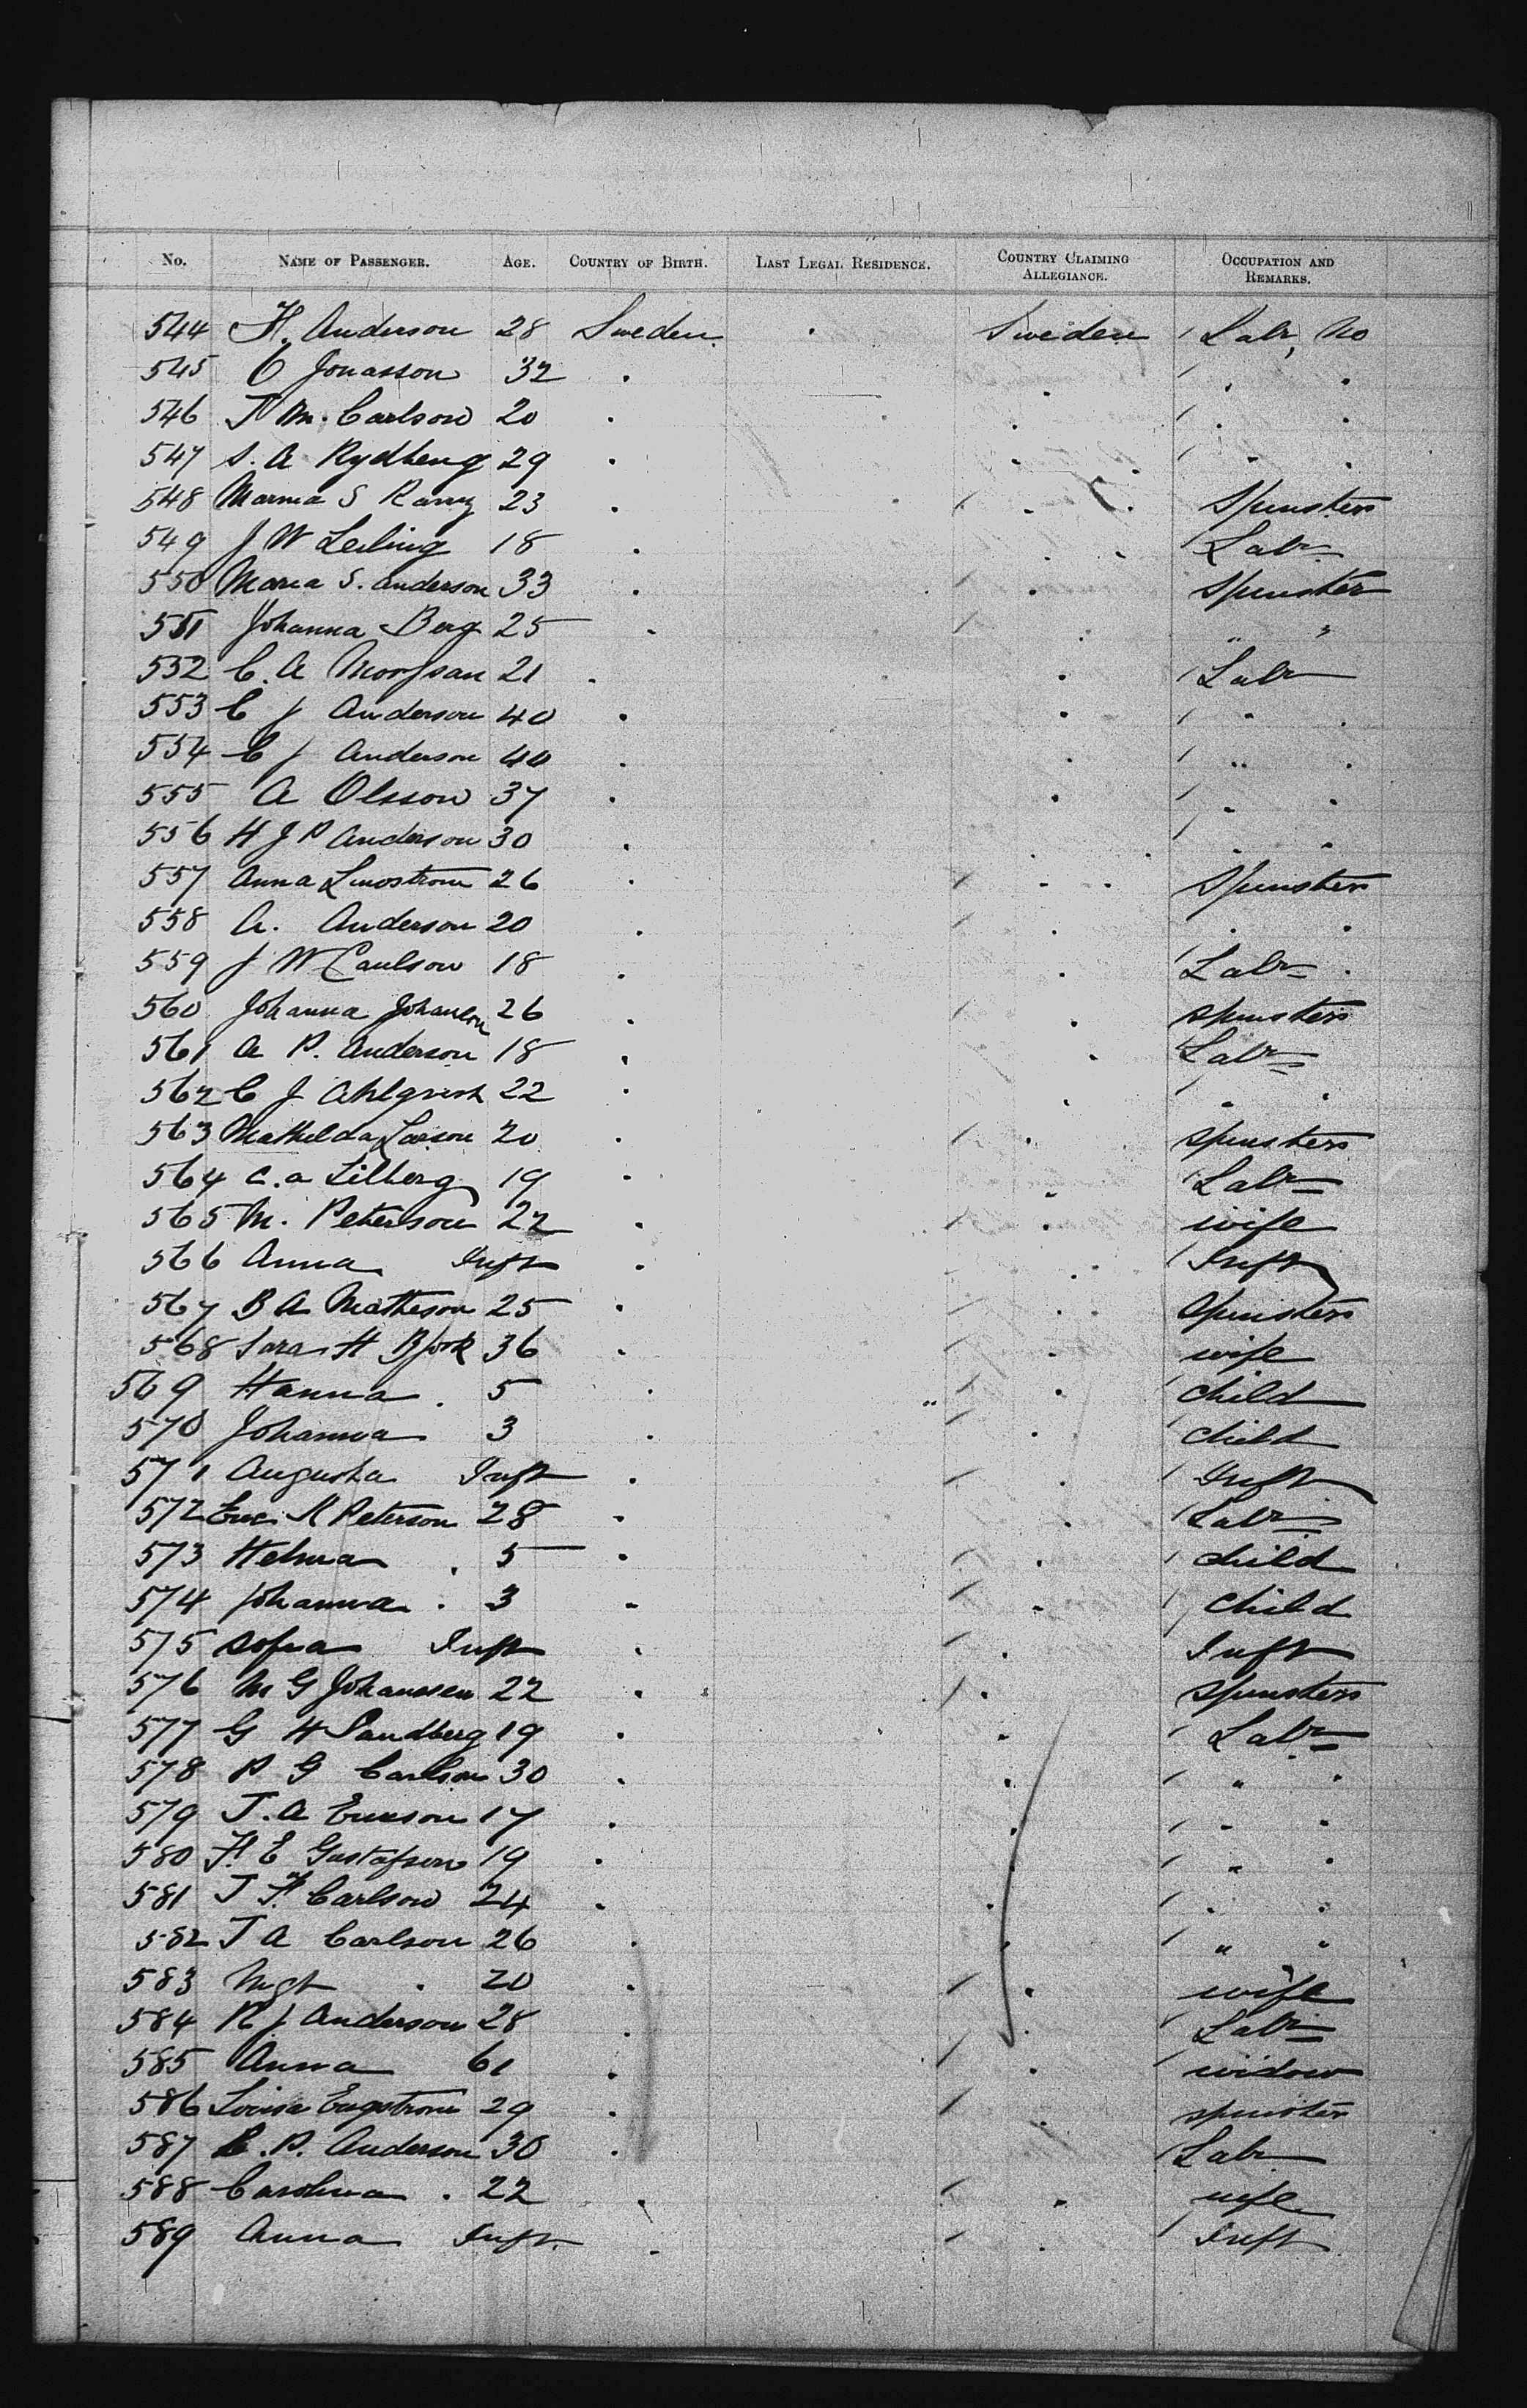 No. NAME OF PASSENGER. AGE. COUNTRY OF BIRTH. LAST LEGAL RESIDENCE. COUNTRY CLAIMING ALLEGIANCE. OCCUPATION AND REMARKS.
544 H. Anderson 28 Sweden Sweden Labr, No
545 O Jonasson 32
546 J M. Carlson 20
547 S. A Rydberg 29
548 S 23 Spinster
549 J W 18 Labr
550 Maria S. Anderson 33 Spinster
551 Johanna Berg 25 " "
552 C. A 21 Labr
553 C J Anderson 40 "
554 C J Anderson 44 "
555 A Olsson 37 "
556 H J P Anderson 30 " "
557 Anna 26 Spinster
558 A. Anderson 20 " "
559 J W Carlson 18 Labr
560 Johanna Johanson 26 Spinster
561 A P. Anderson 18 Labr
562 C J Ahlgrist 22 " "
563 Mathilda Larson 20 Spinster
564 C. A Lilberg 19 Labr
565 M. Peterson 22 wife
566 Anna Inft Inft
567 B A Matheson 25 Spinster
568 Sara H Bjork 36 wife
569 Hanna 5 child
570 Johanna 3 child
571 Augusta Inft Inft
572 Eric M Peterson 28 Labr
573 Helma 5 child
574 Johanna 3 child
575 Sofia Inft Inft
576 M G Johansen 22 Spinster
577 G H Sandberg 19 Labr
578 P G Carlson 30 " "
579 J. A Erikson 17 " "
580 F. E Gustafson 19 " "
581 J F. Carlson 24 " "
582 J A Carlson 26 " "
583 Mgt 20 wife
584 N J Anderson 28 Labr
585 Anna 61 widow
586 Lovisa Engstrom 29 spinster
587 C. P. Anderson 30 Labr
588 Carolina 22 wife
589 Anna Inft Inft